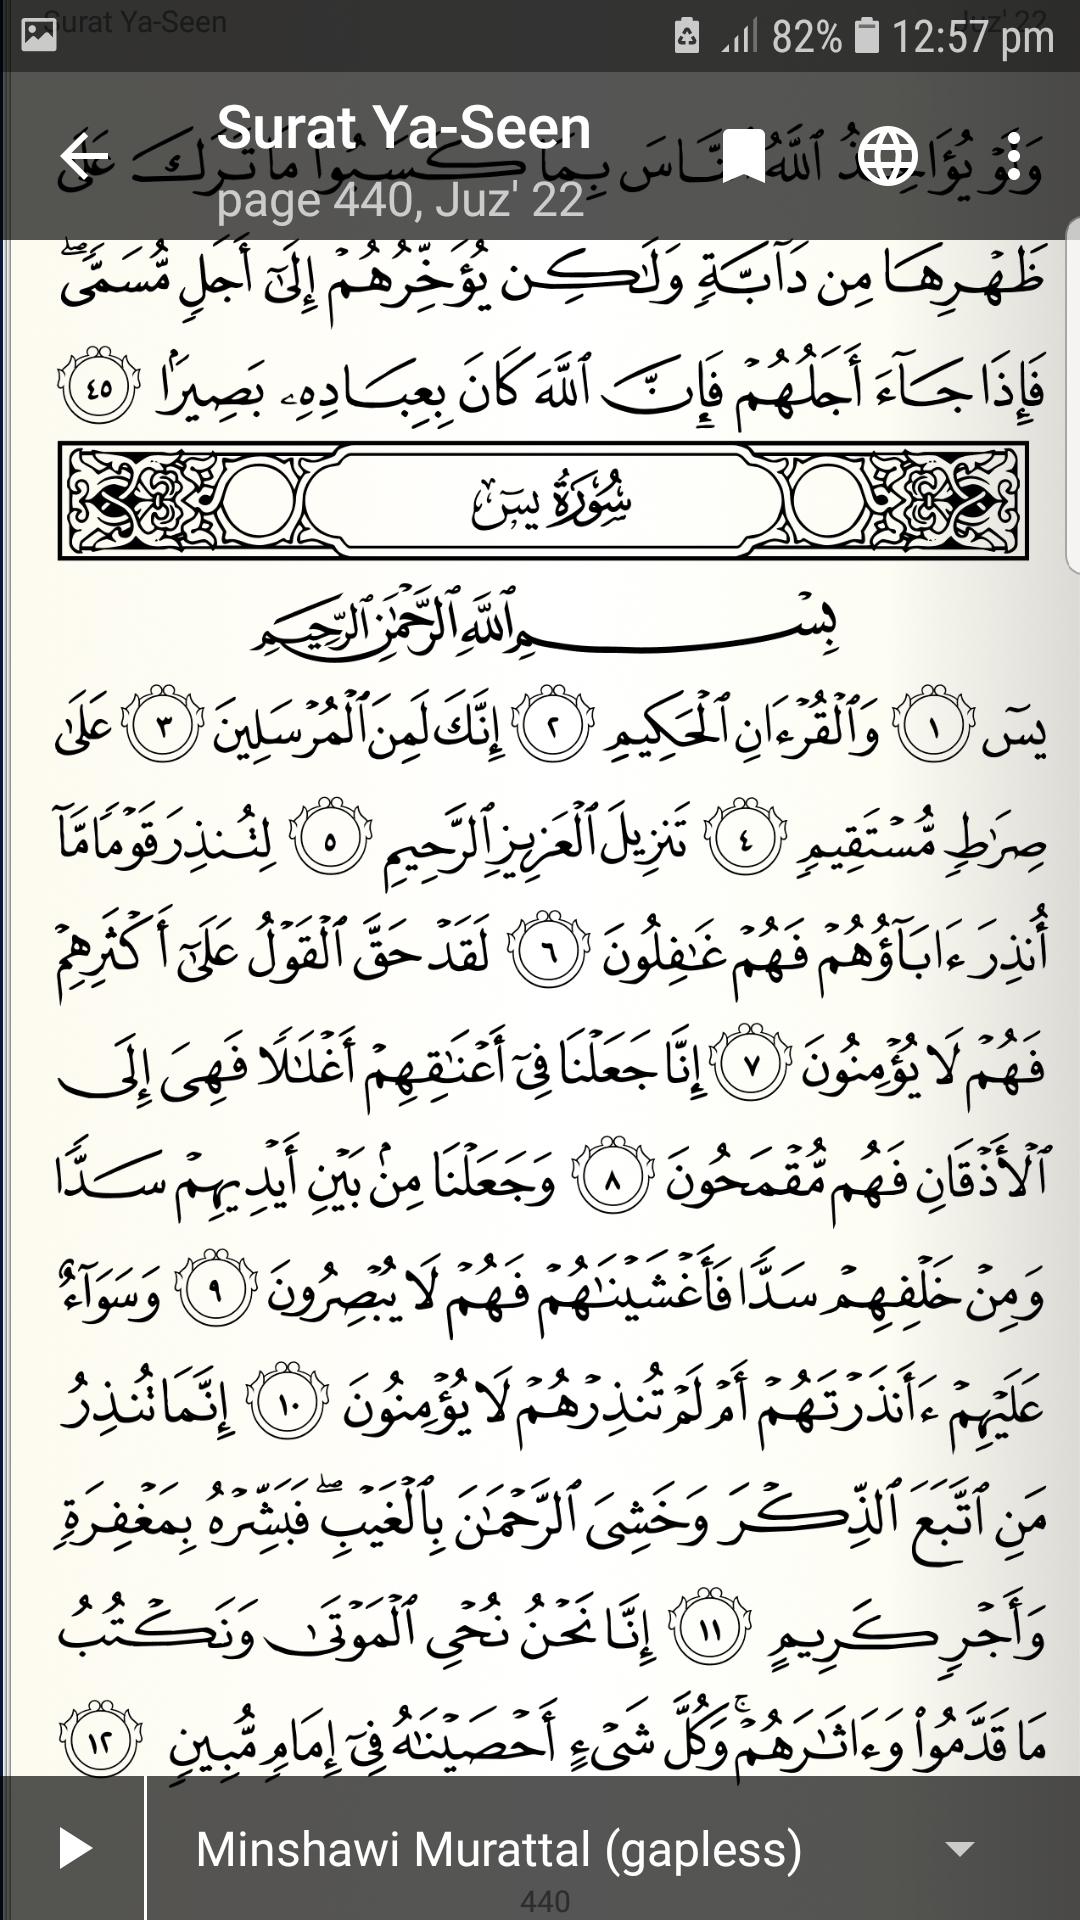 Surat Ya-Seen
Juz' 22
82% 12:57 pm
Surat Ya-Seen
page 440, Juz' 22
وَلَوْ يُؤَاخِذُ ٱللَّهُ ٱلنَّاسَ بِمَا كَسَبُوا۟ مَا تَرَكَ عَلَىٰ
ظَهْرِهَا مِن دَآبَّةٍ وَلَٰكِن يُؤَخِّرُهُمْ إِلَىٰٓ أَجَلٍ مُّسَمًّى ۖ
فَإِذَا جَآءَ أَجَلُهُمْ فَإِنَّ ٱللَّهَ كَانَ بِعِبَادِهِۦ بَصِيرًۢا ٤٥
سُورَةُ يسٓ
بِسْمِ ٱللَّهِ ٱلرَّحْمَٰنِ ٱلرَّحِيمِ
يسٓ ١ وَٱلْقُرْءَانِ ٱلْحَكِيمِ ٢ إِنَّكَ لَمِنَ ٱلْمُرْسَلِينَ ٣ عَلَىٰ
صِرَٰطٍ مُّسْتَقِيمٍ ٤ تَنزِيلَ ٱلْعَزِيزِ ٱلرَّحِيمِ ٥ لِتُنذِرَ قَوْمًا مَّآ
أُنذِرَ ءَابَآؤُهُمْ فَهُمْ غَٰفِلُونَ ٦ لَقَدْ حَقَّ ٱلْقَوْلُ عَلَىٰٓ أَكْثَرِهِمْ
فَهُمْ لَا يُؤْمِنُونَ ٧ إِنَّا جَعَلْنَا فِىٓ أَعْنَٰقِهِمْ أَغْلَٰلًا فَهِىَ إِلَى
ٱلْأَذْقَانِ فَهُم مُّقْمَحُونَ ٨ وَجَعَلْنَا مِنۢ بَيْنِ أَيْدِيهِمْ سَدًّا
وَمِنْ خَلْفِهِمْ سَدًّا فَأَغْشَيْنَٰهُمْ فَهُمْ لَا يُبْصِرُونَ ٩ وَسَوَآءٌ
عَلَيْهِمْ ءَأَنذَرْتَهُمْ أَمْ لَمْ تُنذِرْهُمْ لَا يُؤْمِنُونَ ١٠ إِنَّمَا تُنذِرُ
مَنِ ٱتَّبَعَ ٱلذِّكْرَ وَخَشِىَ ٱلرَّحْمَٰنَ بِٱلْغَيْبِ ۖ فَبَشِّرْهُ بِمَغْفِرَةٍ
وَأَجْرٍ كَرِيمٍ ١١ إِنَّا نَحْنُ نُحْىِ ٱلْمَوْتَىٰ وَنَكْتُبُ
مَا قَدَّمُوا۟ وَءَاثَٰرَهُمْ ۚ وَكُلَّ شَىْءٍ أَحْصَيْنَٰهُ فِىٓ إِمَامٍ مُّبِينٍ ١٢
Minshawi Murattal (gapless)
440